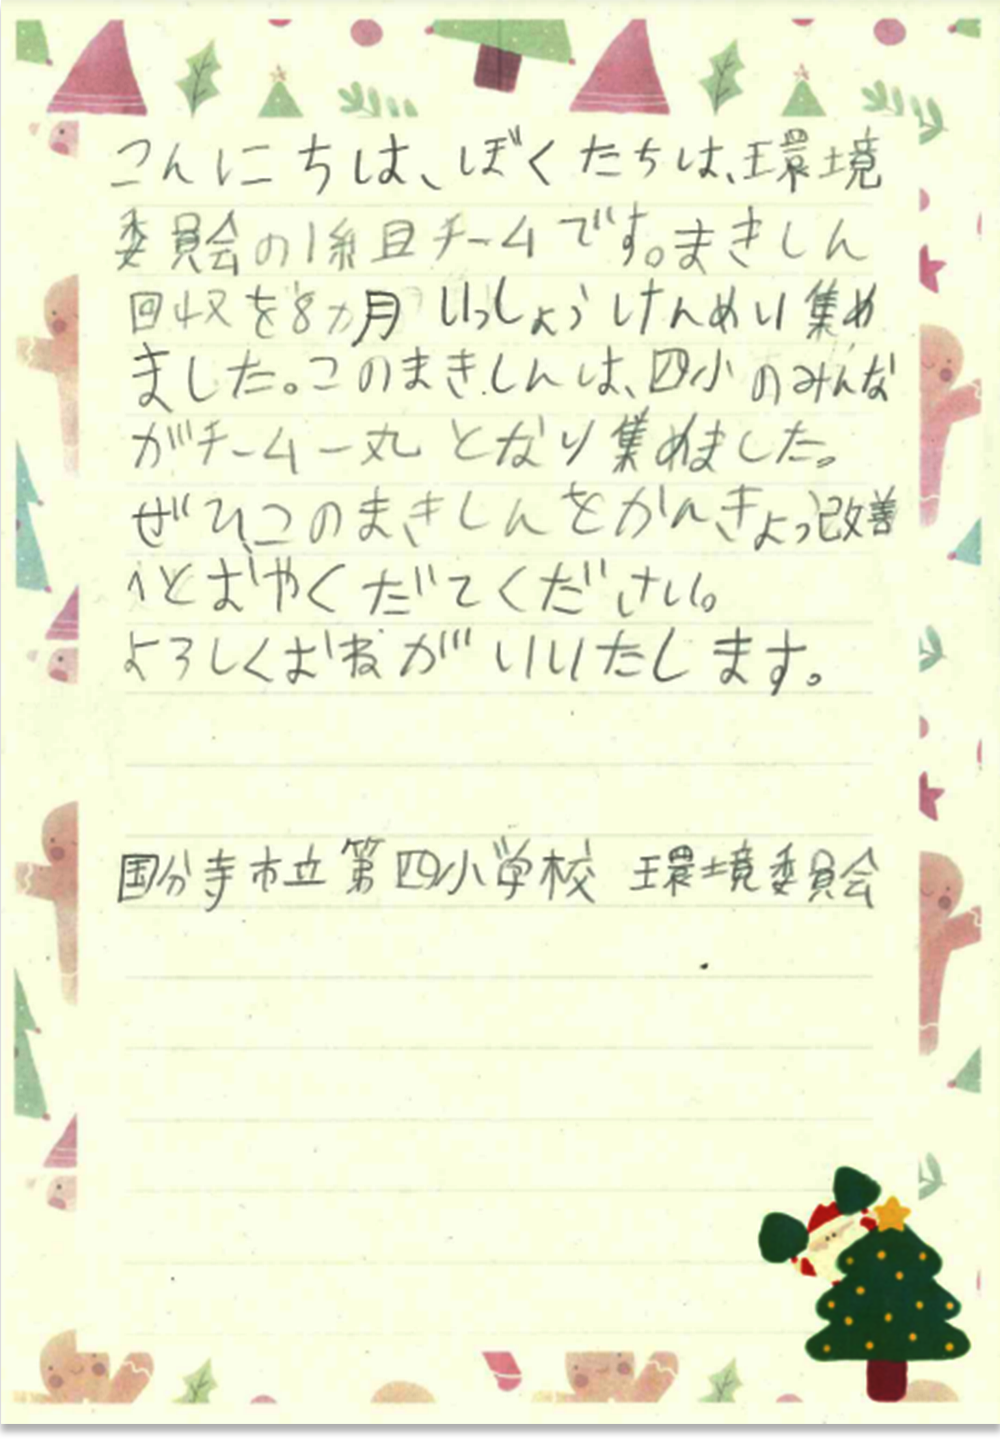 こんにちは、ぼくたちは、環境
委員会の1組目チームです。まきしん
回収を8カ月いっしょうけんめい集め
ました。このまきしんは、四小のみんな
がチーム一丸となり集めました。
ぜひ、このまきしんをかんきょう改善
へとおやくだてください。
よろしくおねがいいたします。
国分寺市立第四小学校 環境委員会